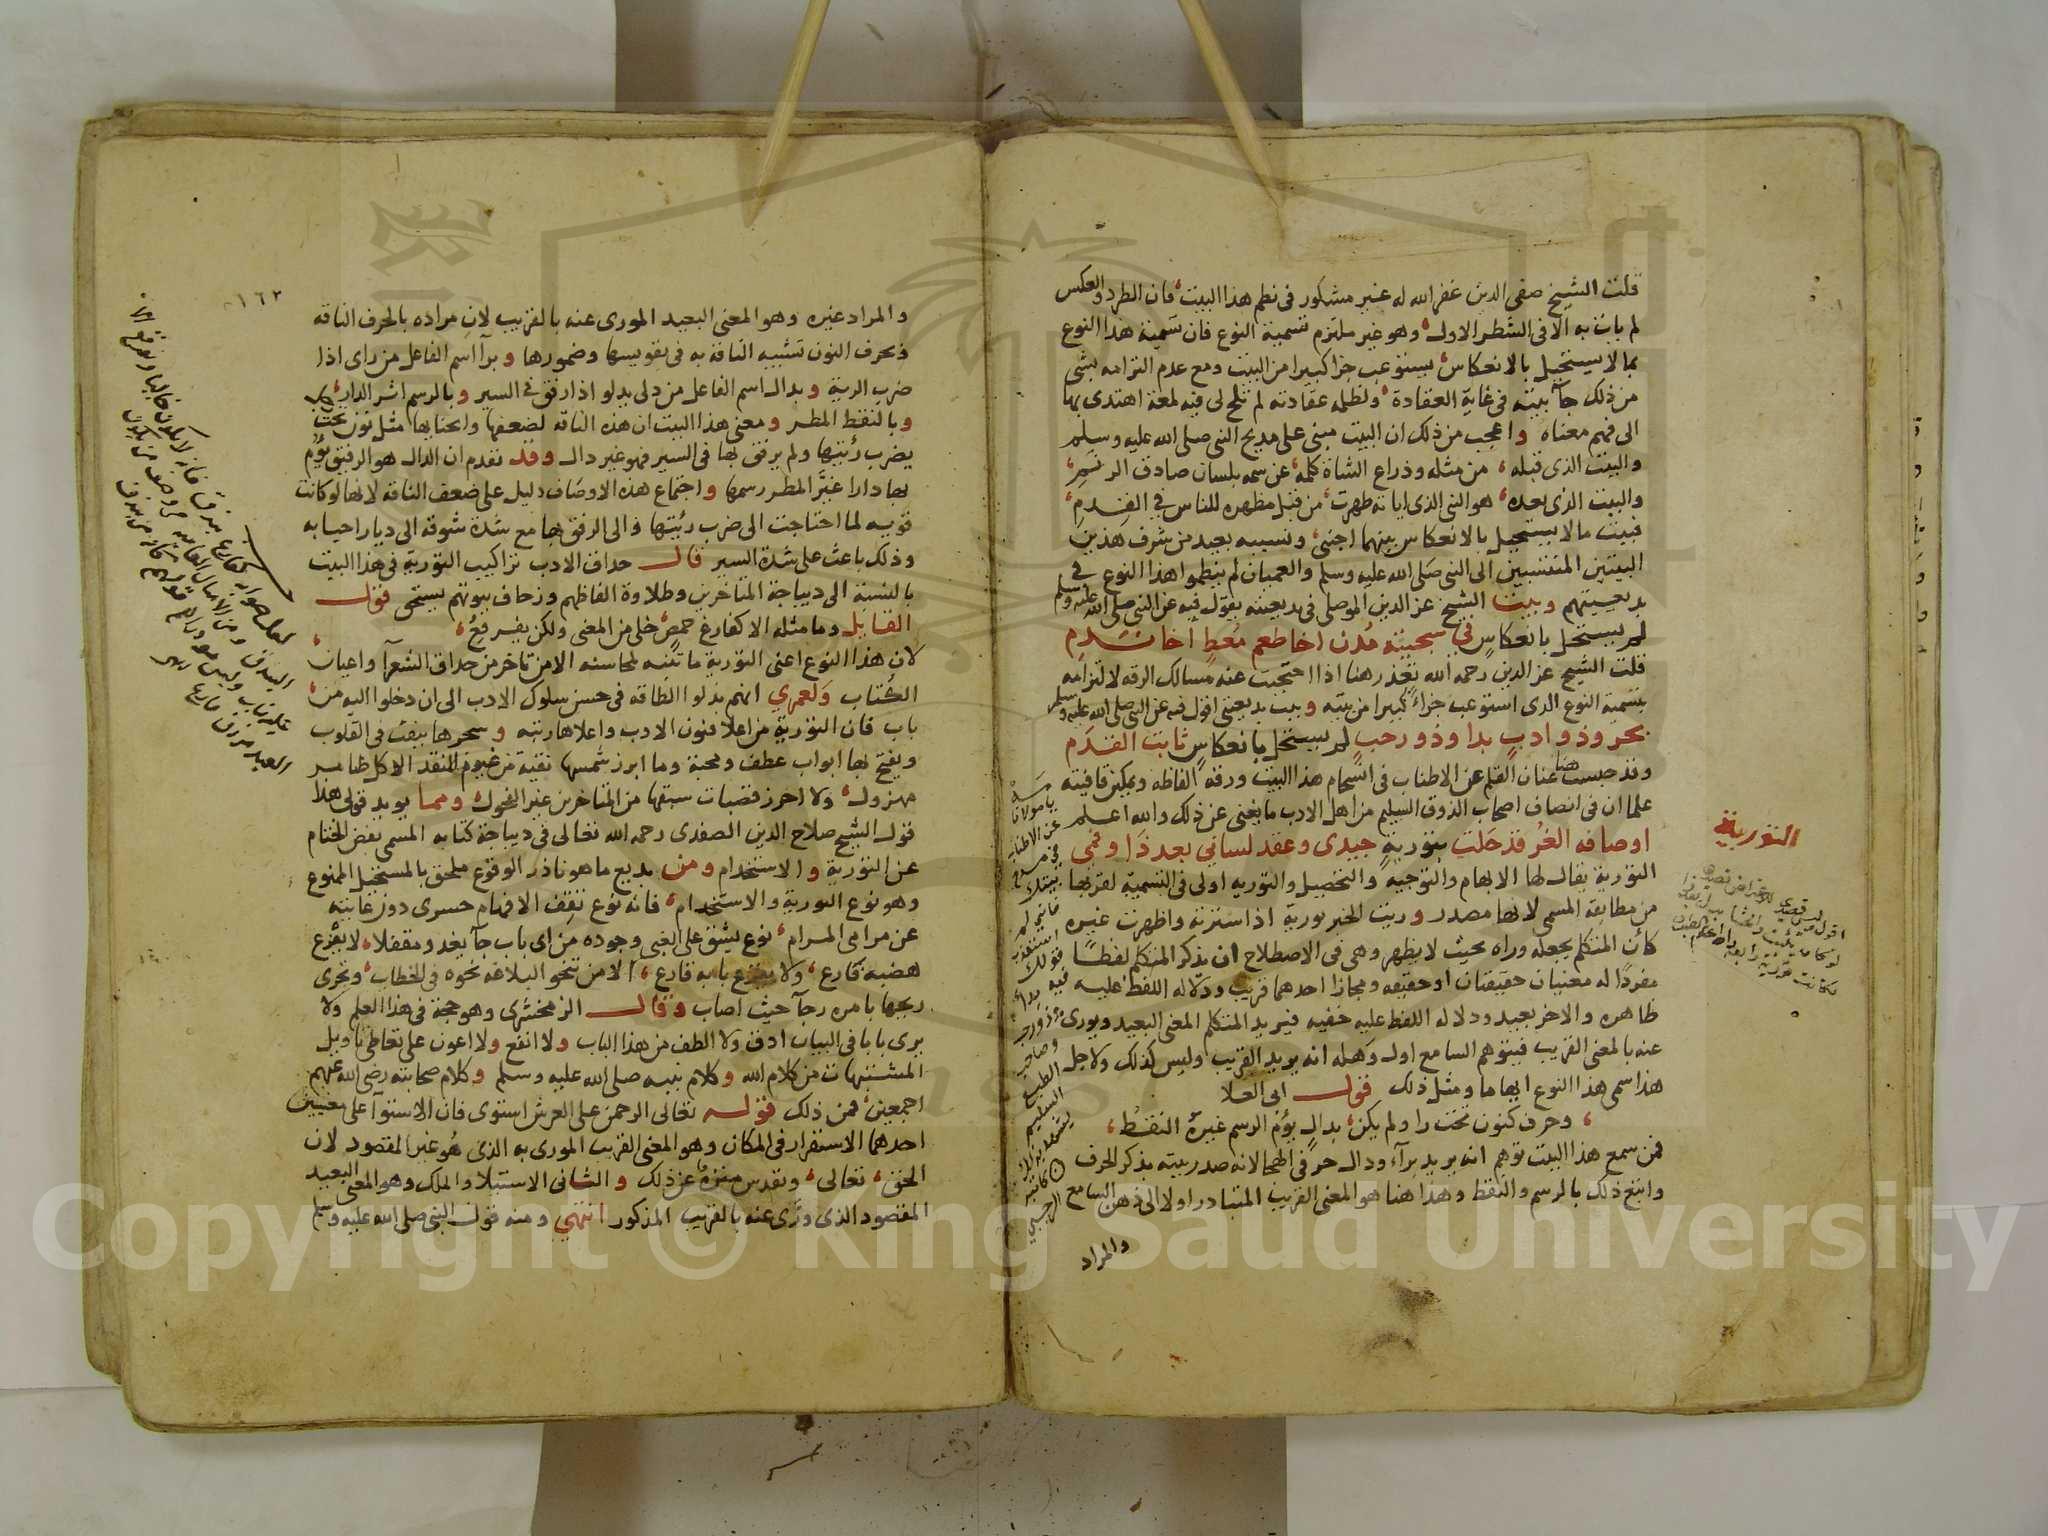 قلت الشيخ صفى الدين غفر الله له غير مشكور فى نظم هذا البيت فان الطرد والعكس
لم يات به الا فى الشطر الاول وهو غير ملتزم تسمية النوع فان تسمية هذا النوع
بما لا يستحيل بالانعكاس يستوعب جزا كبيرا من البيت ومع عدم التزامه بشى
من ذلك جآ بيته فى غاية العقادة ولظلمة عقادته لم تلح لى فيه لمعة اهتدى بها
الى فهم معناه واعجب من ذلك ان البيت مبنى على مديح النبى صلى الله عليه وسلم
والبيت الذى قبله من مثله وذراع الشاة كلمه عن سمه بلسان صادق الرنم
والبيت الذى بعده هو النبى الذى اياته ظهرت من قبل مظهره للناس فى القدم
فبيت ما لا يستحيل بالانعكاس بينهما اجنبى ونسيبه بعيد من شرف هذين
البيتين المنتسبين الى النبى صلى الله عليه وسلم والعميان لم ينظموا هذا النوع فى
بديعيتهم وبيت الشيخ عز الدين الموصلى فى بديعيته يقول فيه عن النبى صلى الله عليه وسلم
لم يستحل بانعكاس فى سجيته مدن اخا طعم معط اخا ندم
قلت الشيخ عز الدين رحمه الله يعذر هنا اذا احتجبت عنه مسالك الرقة لالتزامه
بتسمية النوع الذى استوعب جزاء كبيرا من بيته وبيت بديعيتى اقول فيه عن النبى صلى الله عليه وسلم
بحر وذو ادب بدا وذو رحب لم يستحل بانعكاس ثابت القدم
وقد حبست هنا عنان القلم عن الاطناب فى انسجام هذا البيت ورقة الفاظه وتمكين قافيته
علما ان فى انصاف اصحاب الذوق السليم من اهل الادب ما يغنى عن ذلك والله اعلم
التورية
اوصافه الغر قد حلت بتورية جيدى وعقد لسانى بعد ذا وفمى
التورية يقال لها الايهام والتوجيه والتخييل والتورية اولى فى التسمية لقربها
من مطابقة المسمى لانها مصدر وريت الخبر تورية اذا سترته واظهرت غيره
كأن المتكلم يجعله وراه بحيث لا يظهر وهى فى الاصطلاح ان يذكر المتكلم لفظا
مفردا له معنيان حقيقتان او حقيقه ومجازا احدهما قريب ودلالة اللفظ عليه
ظاهره والاخر بعيد ودلالة اللفظ عليه خفيه فيريد المتكلم المعنى البعيد ويورى
عنه بالمعنى القريب فيتوهم السامع اول وهله انه يريد القريب وليس كذلك ولاجل
هذا سمى هذا النوع ايهاما ومثل ذلك قول ابى العلا
وحرف كنون تحت را ولم يكن بدال يؤم الرسم غيره النقط
فمن سمع هذا البيت توهم انه يريد برآء ودال حرفى الهجا لانه صدر بيته بذكر الحرف
واتبع ذلك بالرسم والنقط وهذا هنا هو المعنى القريب المتبادر اولا الى ذهن السامع
والمراد
١٦٢
والمراد غيره وهو المعنى البعيد المورى عنه بالقريب لان مراده بالحرف الناقة
وبحرف النون تشبيه الناقة به فى تقويسها وضمورها وبرآ اسم الفاعل من راى اذا
ضرب الرية وبدال اسم الفاعل من دلى يدلو اذا رفق فى السير وبالرسم اثر الدار
وبالنقط المطر ومعنى هذا البيت ان هذه الناقة لضعفها وانحنايها مثل نون تحت
يضرب رئيتها ولم يرفق بها فى السير فهو غير دال وقد تقدم ان الدال هو الرفيق يؤم
بها دارا غير المطر رسمها واجتماع هذه الاوصاف دليل على ضعف الناقة لانها لو كانت
قويه لما احتاجت الى ضرب رئيتها والى الرفق بها مع شدة شوقه الى ديار احبابه
وذلك باعث على شدة السير قال حذاق الادب تراكيب التورية فى هذا البيت
بالنسبة الى ديباجة المتاخرين وطلاوة الفاظهم وزخاف بيوتهم يستحق قول
القايل وما مثله الا كفارغ حمص خلى من المعنى ولكن يفرقع
لان هذا النوع اعنى التورية ما تنبه لمحاسنه الا من تاخر من حذاق الشعرآ واعيان
الكتاب ولعمري انهم بذلوا الطاقة فى حسن سلوك الادب الى ان دخلوا اليه من
باب فان التورية من اعلا فنون الادب واعلاها رتبه وسحرها ينفث فى القلوب
ويفتح بها ابواب عطف ومحبة وما ابرز شمسها نقية من غيوم النقد الا كل ضامر
مهزول ولا احرز قصبات سبقها من المتاخرين غير الفحول ومما يويد قولى هذا
قول الشيخ صلاح الدين الصفدى رحمه الله تعالى فى ديباجة كتابه المسمى بفض الختام
عن التورية والاستخدام ومن بديع ما هو نادر الوقوع ملحق بالمستحيل الممنوع
وهو نوع التورية والاستخدام فانه نوع تقف الافهام حسرى دون غايته
عن مرامى المرام نوع يشق على الغبى وجوده من اى باب جآ يغد ومقفلا لا يفرع
هضبه فارع ولا يقرع بابه قارع الا من تنحو البلاغه نحوه فى الخطاب وتجرى
ريحها بامره رجآ حيث اصاب وقال الزمخشرى وهو حجة فى هذا العلم ولا
يرى بابا فى البيان ادق ولا الطف من هذا الباب ولا انفع ولا اعون على تعاطى تاويل
المشتبهات من كلام الله وكلام نبيه صلى الله عليه وسلم وكلام صحابته رضى الله عنهم
اجمعين فمن ذلك قوله تعالى الرحمن على العرش استوى فان الاستوآ على معنيين
احدهما الاستقرار فى المكان وهو المعنى القريب المورى به الذى هو غير المقصود لان
الحق تعالى وتقدس منزه عن ذلك والثانى الاستيلا والملك وهو المعنى البعيد
المقصود الذى ورى عنه بالقريب المذكور انتهي ومنه قول النبى صلى الله عليه وسلم
Copyright © King Saud University